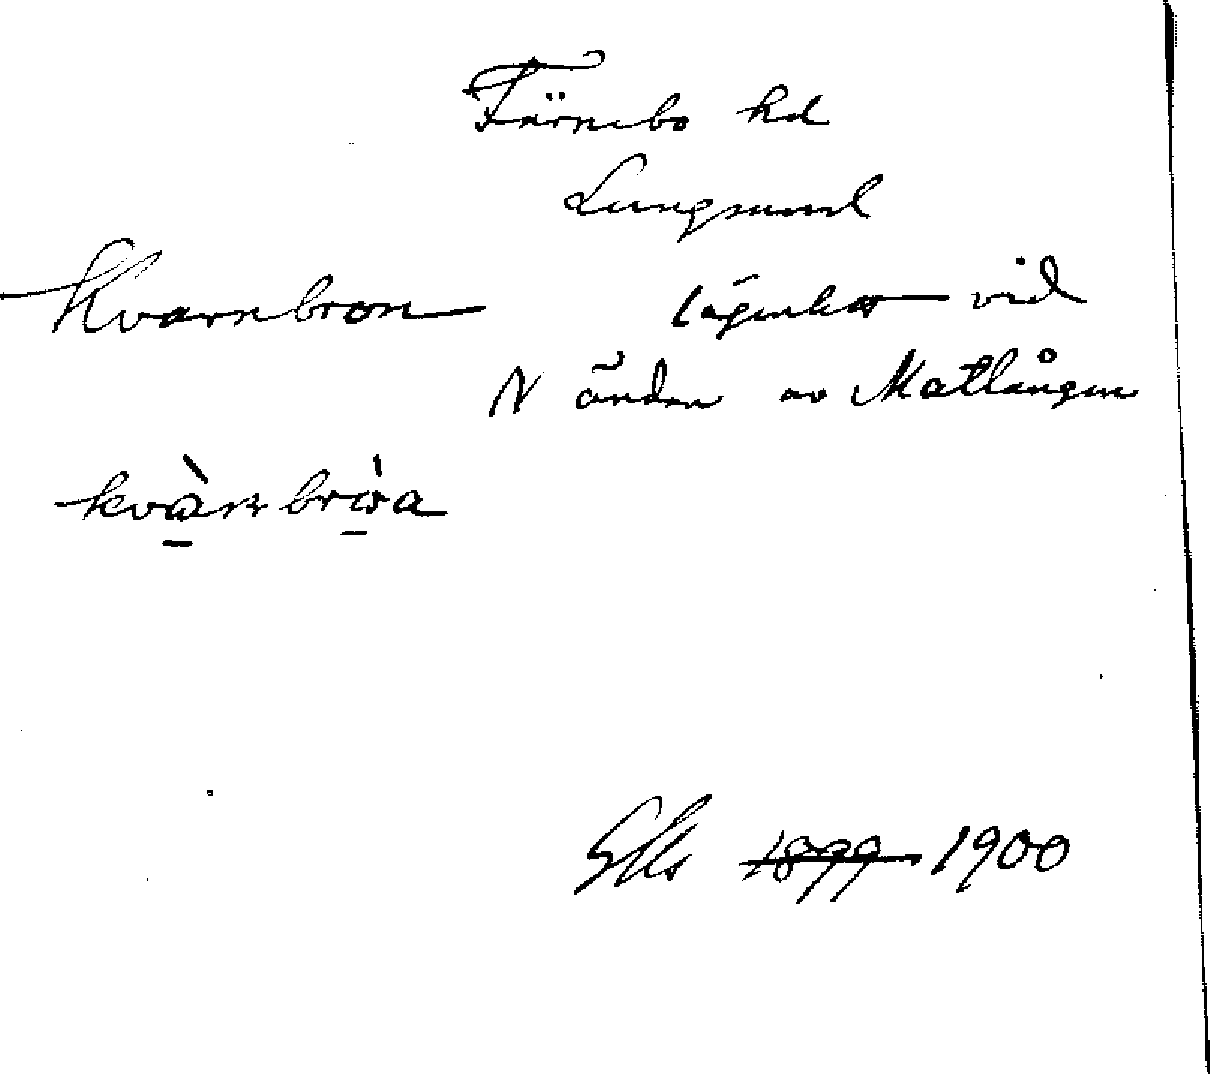 Färnebo hd
Lungsund
Kvarnbron lägenhet vid
N ändan av Matlången
1899 1900